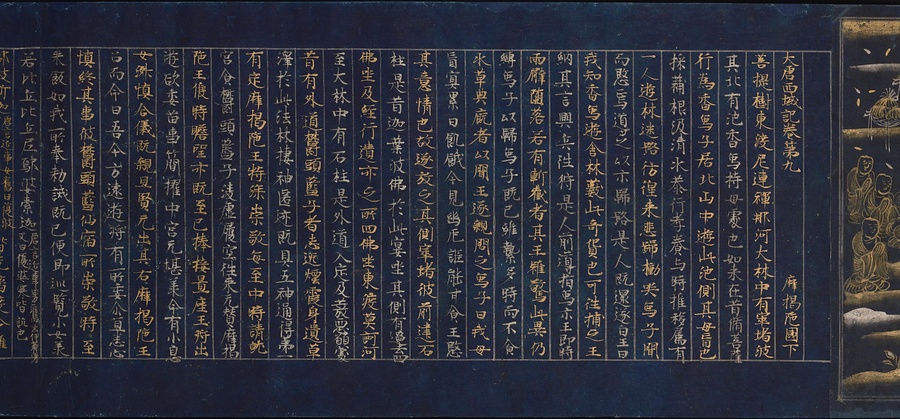 大唐西域記卷第九　摩揭陁國下
菩提樹東渡尼連禪那河大林中有窣堵波
其北有池香象侍母處也如來在昔脩菩薩
行為香象子居北山中遊此池側其母盲也
採藕根汲清水恭行孝養与時推移属有
一人遊林迷路彷徨來悲號慟哭象子聞
而愍焉導之以示歸路是人既還遂白王曰
我知香象遊舍林藪此奇貨也可往捕之王
納其言興兵往狩是人前導指象示王即時
兩臂墮落若有斬截者其王雖驚此異仍
縛象子以歸象子既已維縶多時而不食
水草典廐者以聞王遂親問之象子曰我母
盲冥累日飢餓今見幽厄詎能甘食王愍
其意情也故遂放之其側窣堵彼前建石
柱是昔迦葉波佛於此宴坐其側有過去四
佛坐及經行遺迹之所四佛坐東渡莫訶河
至大林中有石柱是外道入定及發惡願處
昔有外道欝頭藍子者志逸煙霞身遺草
澤於此法林棲神匿迹既具五神通得第一
有定摩揭陁王特深崇敬每至中時請就
宮食欝頭藍子淩虛履空往來无替摩揭
陁王候時瞻望亦既至已捧接置座王將出
遊欲委留事簡擢中宮无堪其命有小息
女淑慎令儀既親且賢无出其右摩揭陁王
召而命曰吾今方遠遊將有所委尒宜悉心
慎終其事彼欝頭藍仙宿所崇敬時至
來飯如我所奉勅誡既已便即巡覽小女承
若比丘比丘尼